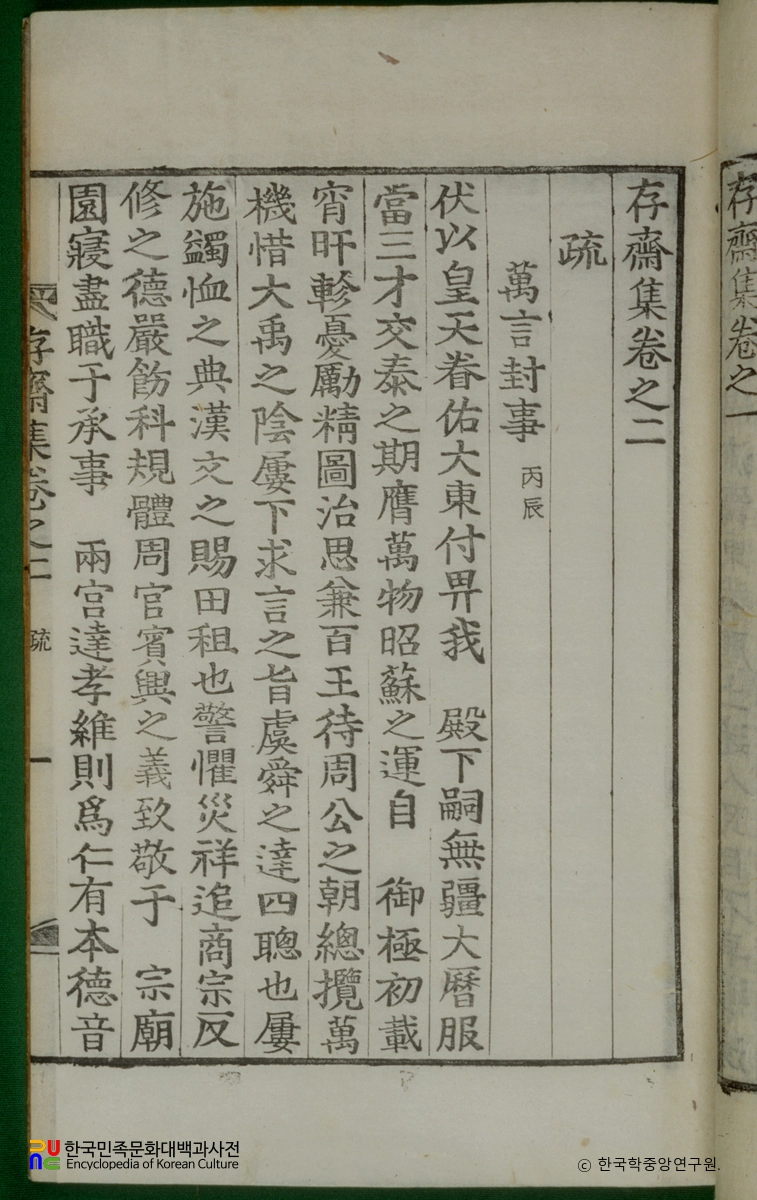 存齋集卷之二
疏
萬言封事 丙辰
伏以皇天眷佑大東付畀我 殿下嗣無疆大曆服
當三才交泰之期膺萬物昭蘇之運自 御極初載
宵旰軫憂勵精圖治思兼百王待周公之朝總攬萬
機惜大禹之陰屢下求言之旨虞舜之達四聰也屢
施蠲恤之典漢文之賜田租也警懼災祥追商宗反
修之德嚴飭科規體周官賓興之義致敬于 宗廟
園寢盡職于承事 兩宮達孝維則爲仁有本德音
存齋集卷之二 疏 一
存齋集卷之一
한국민족문화대백과사전
Encyclopedia of Korean Culture
ⓒ 한국학중앙연구원.